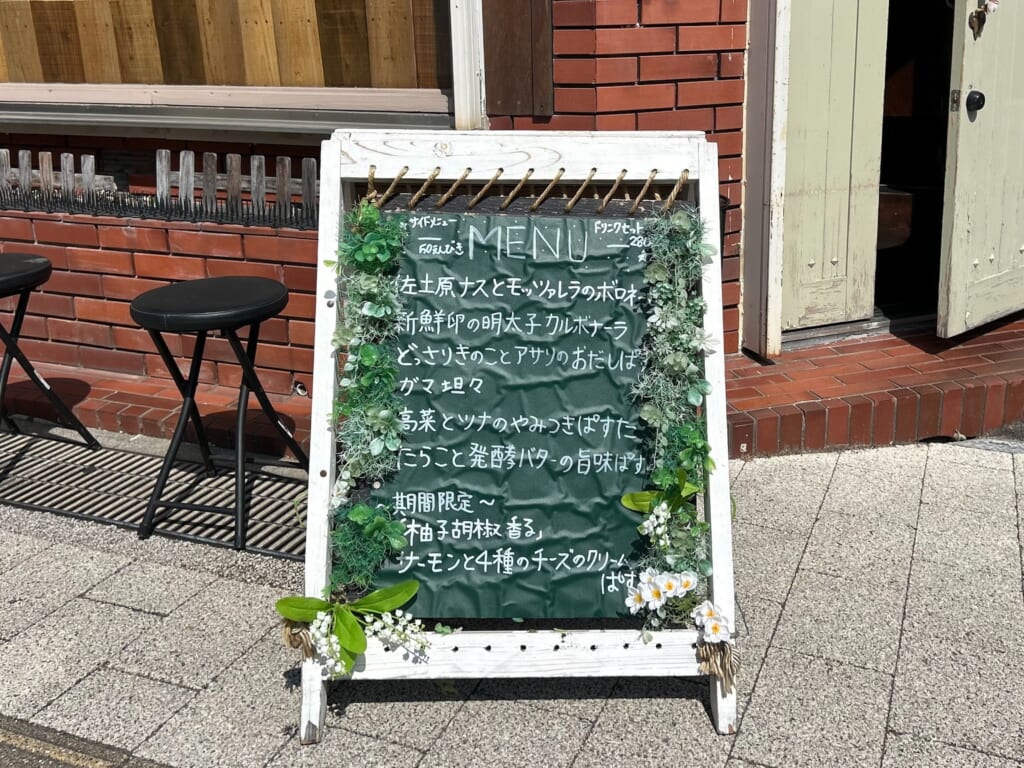 サイドメニュー
50えんびき
MENU
ドリンクセット
280
左土原ナスとモッツァレラのボロネ
新鮮卵の明太子カルボナーラ
どっさりきのことアサリのおだしぱ
ガマ坦々
高菜とツナのやみつきぱすた
たらこと発酵バターの旨味ぱす
期間限定～
「柚子胡椒香る」
サーモンと4種のチーズのクリーム
ぱす